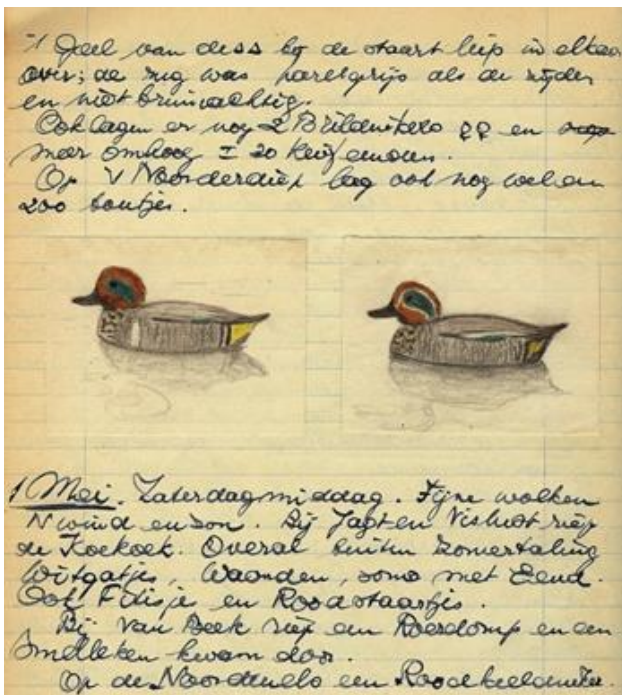 't Geel van dess bij de staart liep in elkaar
over; de rug was parelgrijs als de zijden
en niet bruinachtig.
Ook lagen er nog 2 Brilduikers ♀♀ en
meer omhoog ± 20 Kuifeenden.
Op 't Noorderdiep lag ook nog wel een
200 tontjes.
1 Mei. Zaterdagmiddag. Fijne wolken
N wind en zon. Bij Jagt en Vislust riep
de Koekoek. Overal buiten Zomertaling
Witgatjes, Waarden, soms met Eend.
Ook Fitisje en Roodstaartjes.
Bij Van Beek riep een Roerdomp en een
Smelleken kwam door.
Op de Noordenello een Roodkeelduiker.